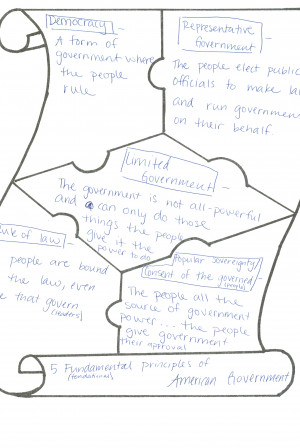 Democracy -
A form of
government where
the people
rule
Representative
Government -
The people elect public
officials to make la
and run governmen
on their behalf
Limited
Government -
The government is not all-powerful
and can only do those
things the people
give it the
power to do
ule of law -
people are bound
the law, even
e that govern
(leaders)
Popular sovereignty/
Consent of the governed -
The people all the
source of government
power... the people
give government
their approval
5 Fundamental principles of
American Government